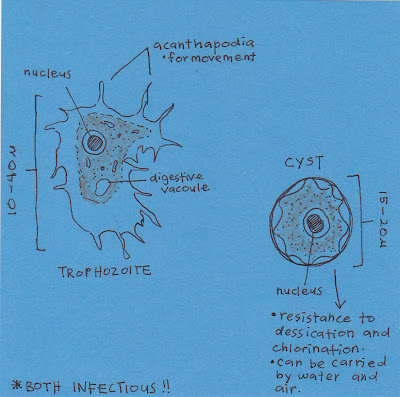 acanthapodia
• for movement
nucleus
10-40µ
digestive
vacoule
TROPHOZOITE
CYST
15-20µ
nucleus
• resistance to
dessication and
chlorination.
• can be carried
by water and
air.
* BOTH INFECTIOUS!!